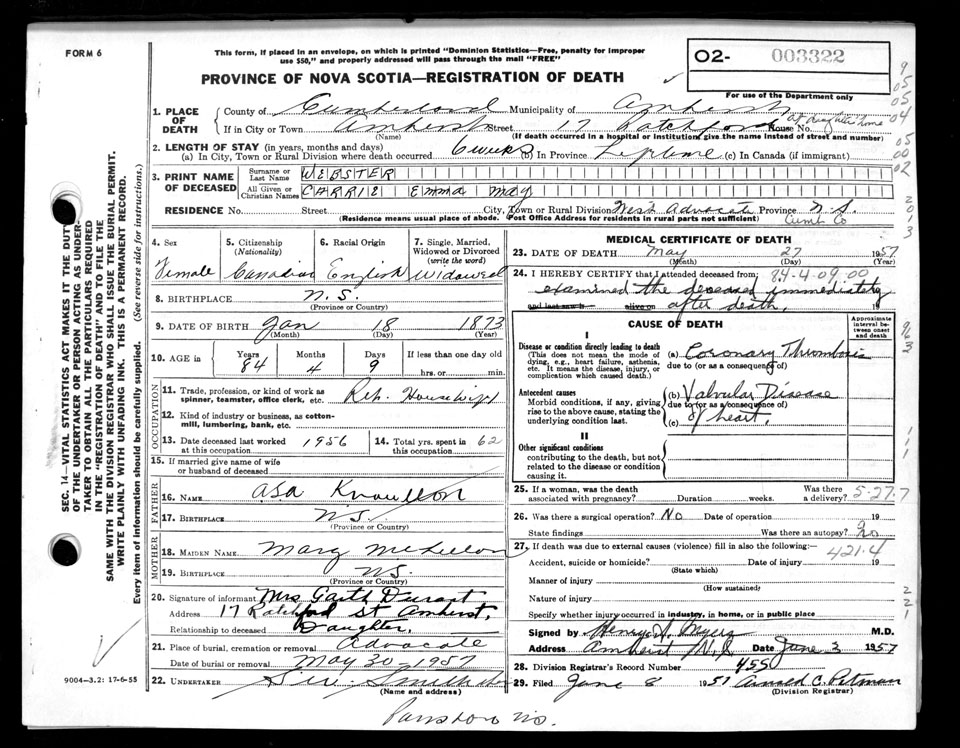 FORM 6
This form, if placed in an envelope, on which is printed "Dominion Statistics—Free, penalty for improper
use $50," and properly addressed will pass through the mail "FREE"
02- 003322
For use of the Department only
PROVINCE OF NOVA SCOTIA—REGISTRATION OF DEATH
1. PLACE OF DEATH
County of Cumberland Municipality of Amherst
If in City or Town Amherst Street 17 Ratchford House No. at daughters home
(Name) (If death occurred in a hospital or institution, give the name instead of street and number)
2. LENGTH OF STAY (in years, months and days)
(a) In City, Town or Rural Division where death occurred 6 weeks (b) In Province Lifetime (c) In Canada (if immigrant)
3. PRINT NAME OF DECEASED
Surname or Last Name WEBSTER
All Given or Christian Names CARRIE Emma May
RESIDENCE No. Street City, Town or Rural Division West Advocate Province N.S.
(Residence means usual place of abode. Post Office Address for residents in rural parts not sufficient) Cumb Co
4. Sex Female
5. Citizenship (Nationality) Canadian
6. Racial Origin English
7. Single, Married, Widowed or Divorced (write the word) Widowed
8. BIRTHPLACE N.S.
(Province or Country)
9. DATE OF BIRTH Jan 18 1873
(Month) (Day) (Year)
10. AGE in Years 84 Months 4 Days 9 If less than one day old
hrs. or min.
OCCUPATION
11. Trade, profession, or kind of work as
spinner, teamster, office clerk, etc. Ret. Housewife
12. Kind of industry or business, as cotton-
mill, lumbering, bank, etc.
13. Date deceased last worked
at this occupation 1956
14. Total yrs. spent in
this occupation 62
15. If married give name of wife
or husband of deceased
FATHER
16. NAME Asa Knowlton
17. BIRTHPLACE N.S.
(Province or Country)
MOTHER
18. MAIDEN NAME Mary
19. BIRTHPLACE N.S.
(Province or Country)
20. Signature of informant Mrs Garth Durant
Address 17 Ratchford St Amherst,
Relationship to deceased Daughter.
21. Place of burial, cremation or removal Advocate
Date of burial or removal May 30, 1957
22. UNDERTAKER Smith
(Name and address)
Parrsboro NS.
MEDICAL CERTIFICATE OF DEATH
23. DATE OF DEATH May 27 1957
(Month) (Day) (Year)
24. I HEREBY CERTIFY that I attended deceased from: 84-4-09 00
examined the deceased immediately
and last saw h alive on after death.
CAUSE OF DEATH
Approximate interval between onset and death
I
Disease or condition directly leading to death
(This does not mean the mode of
dying, e.g., heart failure, asthenia,
etc. It means the disease, injury, or
complication which caused death.)
(a) Coronary Thrombosis
due to (or as a consequence of)
Antecedent causes
Morbid conditions, if any, giving
rise to the above cause, stating the
underlying condition last.
(b) Valvular Disease
due to (or as a consequence of)
(c) of heart.
II
Other significant conditions
contributing to the death, but not
related to the disease or condition
causing it.
25. If a woman, was the death
associated with pregnancy? Duration weeks. Was there a delivery? 5-27-7
26. Was there a surgical operation? No Date of operation 19
State findings Was there an autopsy? no
27. If death was due to external causes (violence) fill in also the following:— 421.4
Accident, suicide or homicide? Date of injury 19
(State which)
Manner of injury
(How sustained)
Nature of injury
Specify whether injury occurred in industry, in home, or in public place
Signed by Henry A. Myers M.D.
Address Amherst N.S. Date June 3 1957
28. Division Registrar's Record Number 455
29. Filed June 8 1957 Arnold C. Pitman
(Division Registrar)
9004-3.2: 17-6-55
SEC. 14—VITAL STATISTICS ACT MAKES IT THE DUTY
OF THE UNDERTAKER OR PERSON ACTING AS UNDER-
TAKER TO OBTAIN ALL THE PARTICULARS REQUIRED
IN THE "REGISTRATION OF DEATH" AND TO FILE THE
SAME WITH THE DIVISION REGISTRAR WHO SHALL ISSUE THE BURIAL PERMIT.
WRITE PLAINLY WITH UNFADING INK. THIS IS A PERMANENT RECORD.
Every item of information should be carefully supplied. (See reverse side for instructions.)